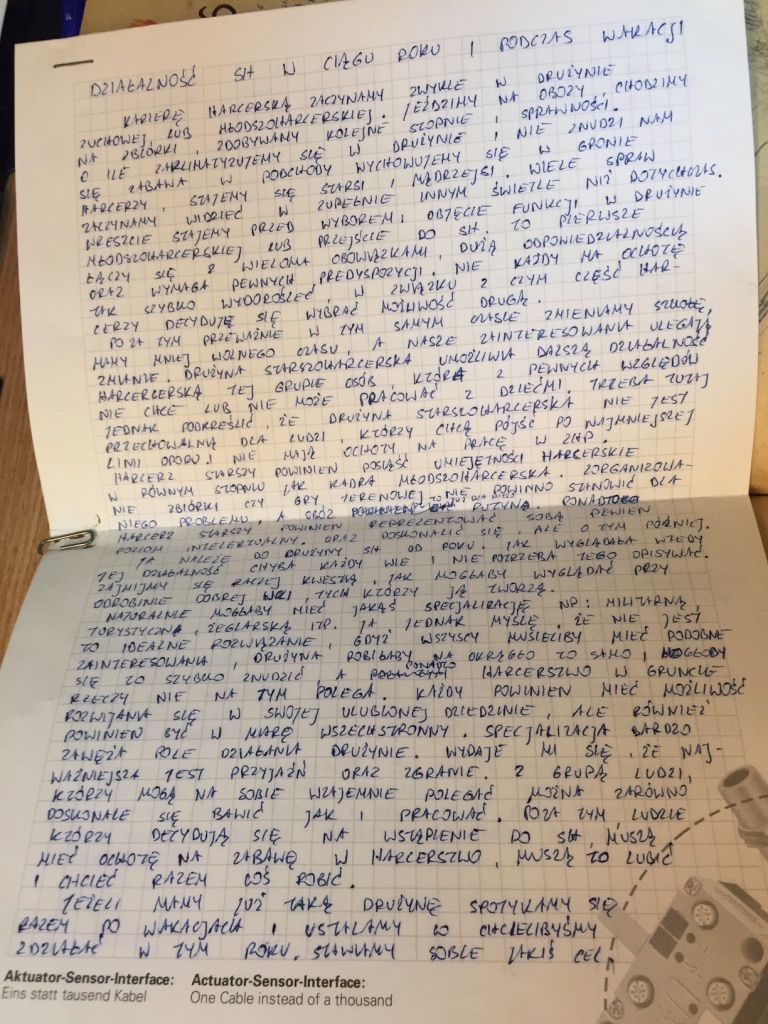 DZIAŁALNOŚĆ SH W CIĄGU ROKU I PODCZAS WAKACJI
KARIERĘ HARCERSKĄ ZACZYNAMY ZWYKLE W DRUŻYNIE
ZUCHOWEJ LUB MŁODSZOHARCERSKIEJ. JEŹDZIMY NA OBOZY, CHODZIMY
NA ZBIÓRKI, ZDOBYWAMY KOLEJNE STOPNIE I SPRAWNOŚCI.
O ILE ZAKLIMATYZUJEMY SIĘ W DRUŻYNIE I NIE ZNUDZI NAM
SIĘ ZABAWA W PODCHODY WYCHOWUJEMY SIĘ W GRONIE
HARCERZY, STAJEMY SIĘ STARSI I MĄDRZEJSI. WIELE SPRAW
ZACZYNAMY WIDZIEĆ W ZUPEŁNIE INNYM ŚWIETLE NIŻ DOTYCHCZAS.
WRESZCIE STAJEMY PRZED WYBOREM: OBJĘCIE FUNKCJI W DRUŻYNIE
MŁODSZOHARCERSKIEJ LUB PRZEJŚCIE DO SH. TO PIERWSZE
ŁĄCZY SIĘ Z WIELOMA OBOWIĄZKAMI, DUŻĄ ODPOWIEDZIALNOŚCIĄ
ORAZ WYMAGA PEWNYCH PREDYSPOZYCJI. NIE KAŻDY MA OCHOTĘ
TAK SZYBKO WYDOROŚLEĆ, W ZWIĄZKU Z CZYM CZĘŚĆ HAR-
CERZY DECYDUJE SIĘ WYBRAĆ MOŻLIWOŚĆ DRUGĄ.
POZA TYM PRZEWAŻNIE W TYM SAMYM CZASIE ZMIENIAMY SZKOŁĘ,
MAMY MNIEJ WOLNEGO CZASU, A NASZE ZAINTERESOWANIA ULEGAJĄ
ZMIANIE. DRUŻYNA STARSZOHARCERSKA UMOŻLIWIA DALSZĄ DZIAŁALNOŚĆ
HARCERCERSKĄ TEJ GRUPIE OSÓB, KTÓRA Z PEWNYCH WZGLĘDÓW
NIE CHCE LUB NIE MOŻE PRACOWAĆ Z DZIEĆMI. TRZEBA TUTAJ
JEDNAK PODKREŚLIĆ, ŻE DRUŻYNA STARSZOHARCERSKA NIE JEST
PRZECHOWALNIĄ DLA LUDZI, KTÓRZY CHCĄ PÓJŚĆ PO NAJMNIEJSZEJ
LINII OPORU I NIE MAJĄ OCHOTY NA PRACĘ W ZHP.
HARCERZ STARSZY POWINIEN POSIĄŚĆ UMIEJĘTNOŚCI HARCERSKIE
W RÓWNYM STOPNIU JAK KADRA MŁODSZOHARCERSKA. ZORGANIZOWA-
NIE ZBIÓRKI CZY GRY TERENOWEJ NIE POWINNO STANOWIĆ DLA
NIEGO PROBLEMU, A OBÓZ TO JUŻ DLA NIEGO RUTYNA. PONADTO
HARCERZ STARSZY POWINIEN REPREZENTOWAĆ SOBĄ PEWIEN
POZIOM INTELEKTUALNY. ORAZ DOSKONALIĆ SIĘ, ALE O TYM PÓŹNIEJ.
JA NALEŻĘ DO DRUŻYNY SH OD ROKU. JAK WYGLĄDAŁA WTEDY
JEJ DZIAŁALNOŚĆ CHYBA KAŻDY WIE I NIE POTRZEBA TEGO OPISYWAĆ.
ZAJMIJMY SIĘ RACZEJ KWESTIĄ, JAK MOGŁABY WYGLĄDAĆ PRZY
ODROBINIE DOBREJ WOLI, TYCH KTÓRZY JĄ TWORZĄ.
NATURALNIE MOGŁABY MIEĆ JAKĄŚ SPECJALIZACJĘ NP: MILITARNĄ,
TURYSTYCZNĄ, ŻEGLARSKĄ ITP. JA JEDNAK MYŚLĘ, ŻE NIE JEST
TO IDEALNE ROZWIĄZANIE, GDYŻ WSZYSCY MUSIELIBY MIEĆ PODOBNE
ZAINTERESOWANIA, DRUŻYNA ROBIŁABY NA OKRĄGŁO TO SAMO, MOGŁOBY
SIĘ TO SZYBKO ZNUDZIĆ, A PONADTO HARCERSTWO W GRUNCIE
RZECZY NIE NA TYM POLEGA. KAŻDY POWINIEN MIEĆ MOŻLIWOŚĆ
ROZWIJANIA SIĘ W SWOJEJ ULUBIONEJ DZIEDZINIE, ALE RÓWNIEŻ
POWINIEN BYĆ W MIARĘ WSZECHSTRONNY. SPECJALIZACJA BARDZO
ZAWĘŻA POLE DZIAŁANIA DRUŻYNIE. WYDAJE MI SIĘ, ŻE NAJ-
WAŻNIEJSZA JEST PRZYJAŹŃ ORAZ ZGRANIE. Z GRUPĄ LUDZI,
KTÓRZY MOGĄ NA SOBIE WZAJEMNIE POLEGAĆ MOŻNA ZARÓWNO
DOSKONALE SIĘ BAWIĆ JAK I PRACOWAĆ. POZA TYM, LUDZIE
KTÓRZY DECYDUJĄ SIĘ NA WSTĄPIENIE DO SH, MUSZĄ
MIEĆ OCHOTĘ NA ZABAWĘ W HARCERSTWO, MUSZĄ TO LUBIĆ
I CHCIEĆ RAZEM COŚ ROBIĆ.
JEŻELI MAMY JUŻ TAKĄ DRUŻYNĘ SPOTYKAMY SIĘ
RAZEM PO WAKACJACH I USTALAMY CO CHCIELIBYŚMY
ZDZIAŁAĆ W TYM ROKU. STAWIAMY SOBIE JAKIŚ CEL,
Aktuator-Sensor-Interface: Actuator-Sensor-Interface:
Eins statt tausend Kabel One Cable instead of a thousand